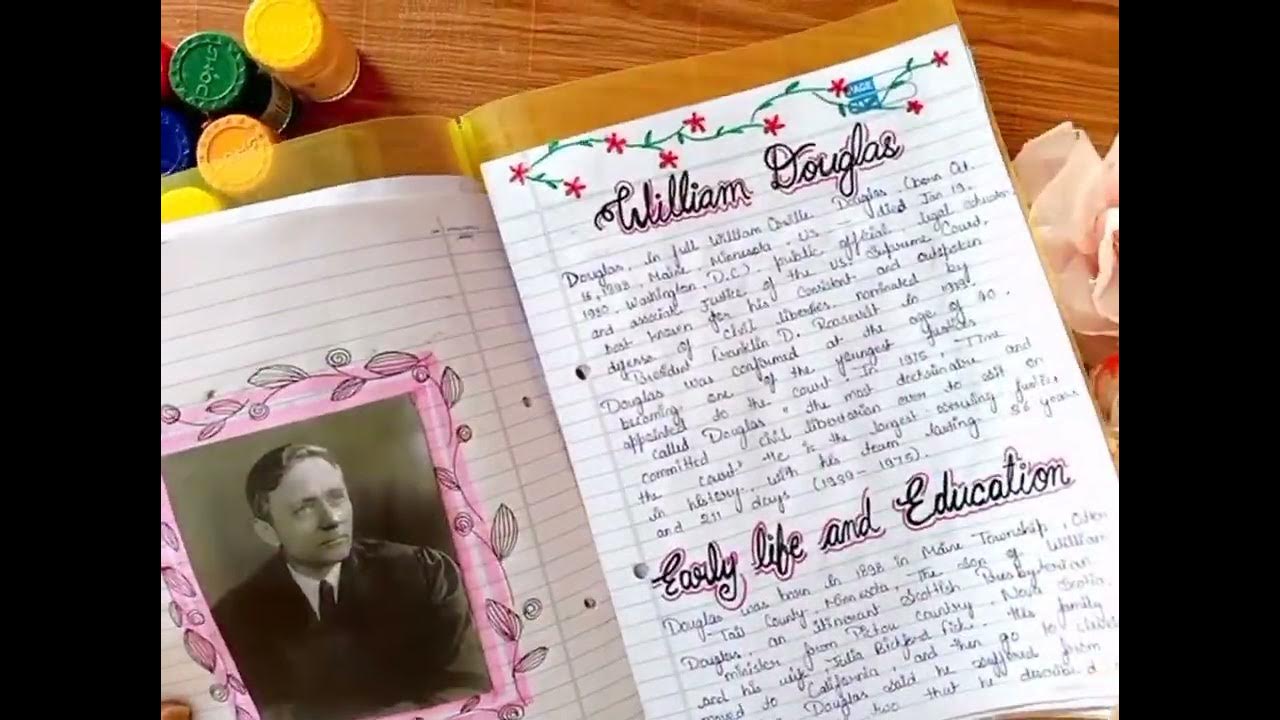 DOMS
DOMS
William Douglas
Douglas, in full William Orville Douglas (born Oct.
16, 1898, Maine, Minnesota, US - died Jan 19.
1980, Washington, D.C.), public official, legal educator
and associate Justice of the US. Supreme Court,
best known for his consistent and outspoken
defense of civil liberties. nominated by
Franklin D. Roosevelt in 1939.
Douglas was confirmed at the age of 40.
becoming one of the youngest Justices
appointed to the court. In 1975, Time
called Douglas "the most doctrinaire and
committed civil libertarian ever to sit on
the court" He is the largest Justice
in history, with his team lasting 36 years
and 211 days (1939-1975).
Early life and Education
Douglas was born in 1898 in Maine Township, Otter
Tail County, Minnesota, the son of William
Douglas, an itinerant Scottish
minister from Pictou Country, Nova Scotia,
and his wife, Julia Bickford Fisk. His family
moved to California, and then go to
Douglas said he suffered from
two that he described